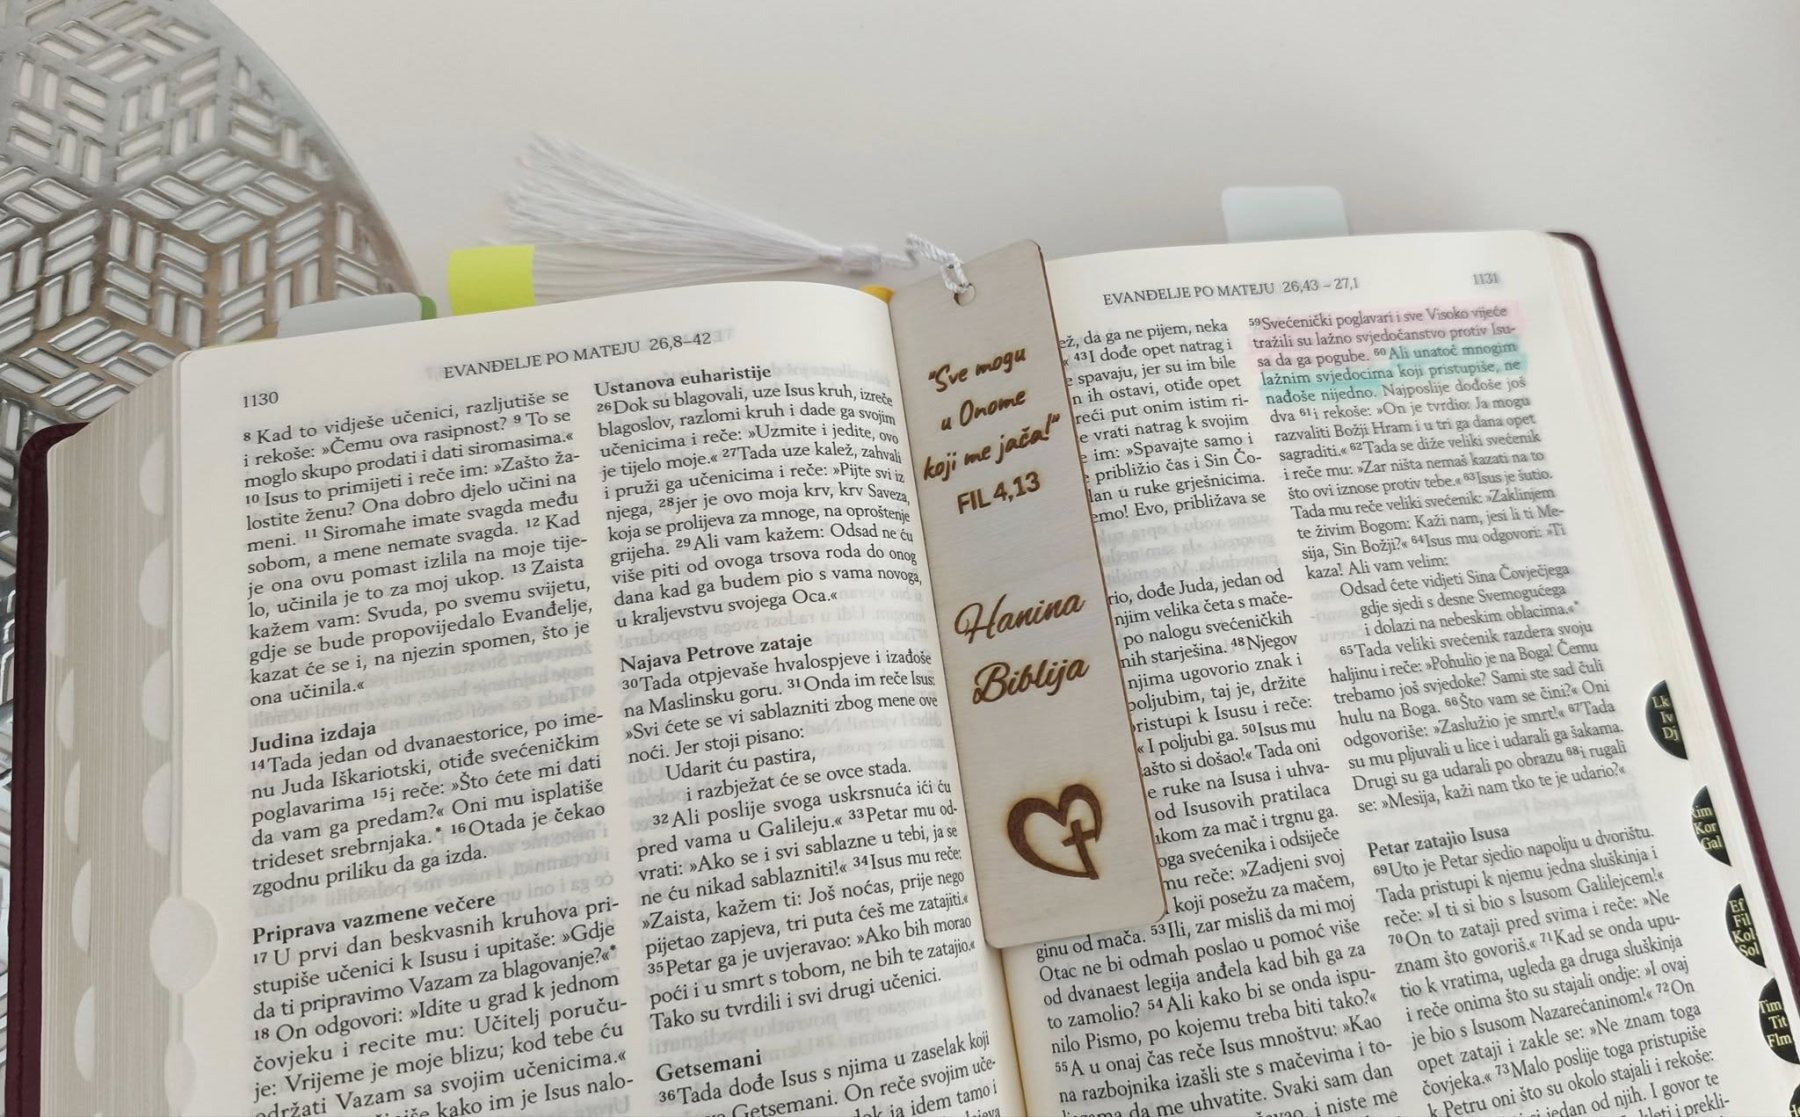 1130
EVANĐELJE PO MATEJU 26,8–42
8 Kad to vidješe učenici, razljutiše se
i rekoše: »Čemu ova rasipnost? 9 To se
moglo skupo prodati i dati siromasima.«
10 Isus to primijeti i reče im: »Zašto ža-
lostite ženu? Ona dobro djelo učini na
meni. 11 Siromahe imate svagda među
sobom, a mene nemate svagda. 12 Kad
je ona ovu pomast izlila na moje tije-
lo, učinila je to za moj ukop. 13 Zaista
kažem vam: Svuda, po svemu svijetu,
gdje se bude propovijedalo Evanđelje,
kazat će se i, na njezin spomen, što je
ona učinila.«
Judina izdaja
14Tada jedan od dvanaestorice, po ime-
nu Juda Iškariotski, otiđe svećeničkim
poglavarima 15i reče: »Što ćete mi dati
da vam ga predam?« Oni mu isplatiše
trideset srebrnjaka.* 16Otada je čekao
zgodnu priliku da ga izda.
Priprava vazmene večere
17 U prvi dan beskvasnih kruhova pri-
stupiše učenici k Isusu i upitaše: »Gdje
da ti pripravimo Vazam za blagovanje?«*
18 On odgovori: »Idite u grad k jednom
čovjeku i recite mu: Učitelj poruču-
je: Vrijeme je moje blizu; kod tebe ću
održati Vazam sa svojim učenicima.«
kako im je Isus nalo-
Ustanova euharistije
26Dok su blagovali, uze Isus kruh, izreče
blagoslov, razlomi kruh i dade ga svojim
učenicima i reče: »Uzmite i jedite, ovo
je tijelo moje.« 27Tada uze kalež, zahvali
i pruži ga učenicima i reče: »Pijte svi iz
njega, 28jer je ovo moja krv, krv Saveza,
koja se prolijeva za mnoge, na oproštenje
grijeha. 29Ali vam kažem: Odsad ne ću
više piti od ovoga trsova roda do onog
dana kad ga budem pio s vama novoga,
u kraljevstvu svojega Oca.«
Najava Petrove zataje
30Tada otpjevaše hvalospjeve i izađoše
na Maslinsku goru. 31Onda im reče Isus:
»Svi ćete se vi sablazniti zbog mene ove
noći. Jer stoji pisano:
Udarit ću pastira,
i razbježat će se ovce stada.
32Ali poslije svoga uskrsnuća ići ću
pred vama u Galileju.« 33Petar mu od-
vrati: »Ako se i svi sablazne u tebi, ja se
ne ću nikad sablazniti!« 34Isus mu reče:
»Zaista, kažem ti: Još noćas, prije nego
pijetao zapjeva, tri puta ćeš me zatajiti.«
35Petar ga je uvjeravao: »Ako bih morao
poći i u smrt s tobom, ne bih te zatajio.«
Tako su tvrdili i svi drugi učenici.
Getsemani
36Tada dođe Isus s njima u zaselak koji
Getsemani. On reče svojim uče-
dok ja idem tamo i
"Sve mogu
u Onome
koji me jača!"
FIL 4,13
Hanina
Biblija
EVANĐELJE PO MATEJU 26,43 – 27,1
1131
da ga ne pijem, neka
43I dođe opet natrag i
spavaju, jer su im bile
ih ostavi, otiđe opet
reći put onim istim ri-
vrati natrag k svojim
im: »Spavajte samo i
približio čas i Sin Čo-
u ruke grješnicima.
emo! Evo, približava se
dođe Juda, jedan od
njim velika četa s mače-
po nalogu svećeničkih
starješina. 48Njegov
njima ugovorio znak i
poljubim, taj je, držite
pristupi k Isusu i reče:
« I poljubi ga. 50Isus mu
što si došao!« Tada oni
e ruke na Isusa i uhva-
od Isusovih pratilaca
kom za mač i trgnu ga.
oga svećenika i odsiječe
mu reče: »Zadjeni svoj
koji posežu za mačem,
ginu od mača. 53Ili, zar misliš da mi moj
Otac ne bi odmah poslao u pomoć više
od dvanaest legija anđela kad bih ga za
to zamolio? 54Ali kako bi se onda ispu-
nilo Pismo, po kojemu treba biti tako?«
55A u onaj čas reče Isus mnoštvu: »Kao
na razbojnika izašli ste s mačevima i to-
da me uhvatite. Svaki sam dan
i niste me
59Svećenički poglavari i sve Visoko vijeće
tražili su lažno svjedočanstvo protiv Isu-
sa da ga pogube. 60Ali unatoč mnogim
lažnim svjedocima koji pristupiše, ne
nađoše nijedno. Najposlije dođoše još
dva 61i rekoše: »On je tvrdio: Ja mogu
razvaliti Božji Hram i u tri ga dana opet
sagraditi.« 62Tada se diže veliki svećenik
i reče mu: »Zar ništa nemaš kazati na to
što ovi iznose protiv tebe.« 63Isus je šutio.
Tada mu reče veliki svećenik: »Zaklinjem
te živim Bogom: Kaži nam, jesi li ti Me-
sija, Sin Božji?« 64Isus mu odgovori: »Ti
kaza! Ali vam velim:
Odsad ćete vidjeti Sina Čovječjega
gdje sjedi s desne Svemogućega
i dolazi na nebeskim oblacima.«*
65Tada veliki svećenik razdera svoju
haljinu i reče: »Pohulio je na Boga! Čemu
trebamo još svjedoke? Sami ste sad čuli
hulu na Boga. 66Što vam se čini?« Oni
odgovoriše: »Zaslužio je smrt!« 67Tada
su mu pljuvali u lice i udarali ga šakama.
Drugi su ga udarali po obrazu 68i rugali
se: »Mesija, kaži nam tko te je udario?«
Petar zatajio Isusa
69Uto je Petar sjedio napolju u dvorištu.
Tada pristupi k njemu jedna sluškinja i
reče: »I ti si bio s Isusom Galilejcem!«
70On to zataji pred svima i reče: »Ne
znam što govoriš.« 71Kad se onda upu-
tio k vratima, ugleda ga druga sluškinja
i reče onima što su stajali ondje: »I ovaj
je bio s Isusom Nazarećaninom!« 72On
opet zataji i zakle se: »Ne znam toga
čovjeka.« 73Malo poslije toga pristupiše
k Petru oni što su okolo stajali i rekoše:
si jedan od njih. I govor te
kleti i prekli-
Lk
Iv
Dj
Rim
Kor
Gal
Ef
Fil
Kol
Sol
Tim
Tit
Flm